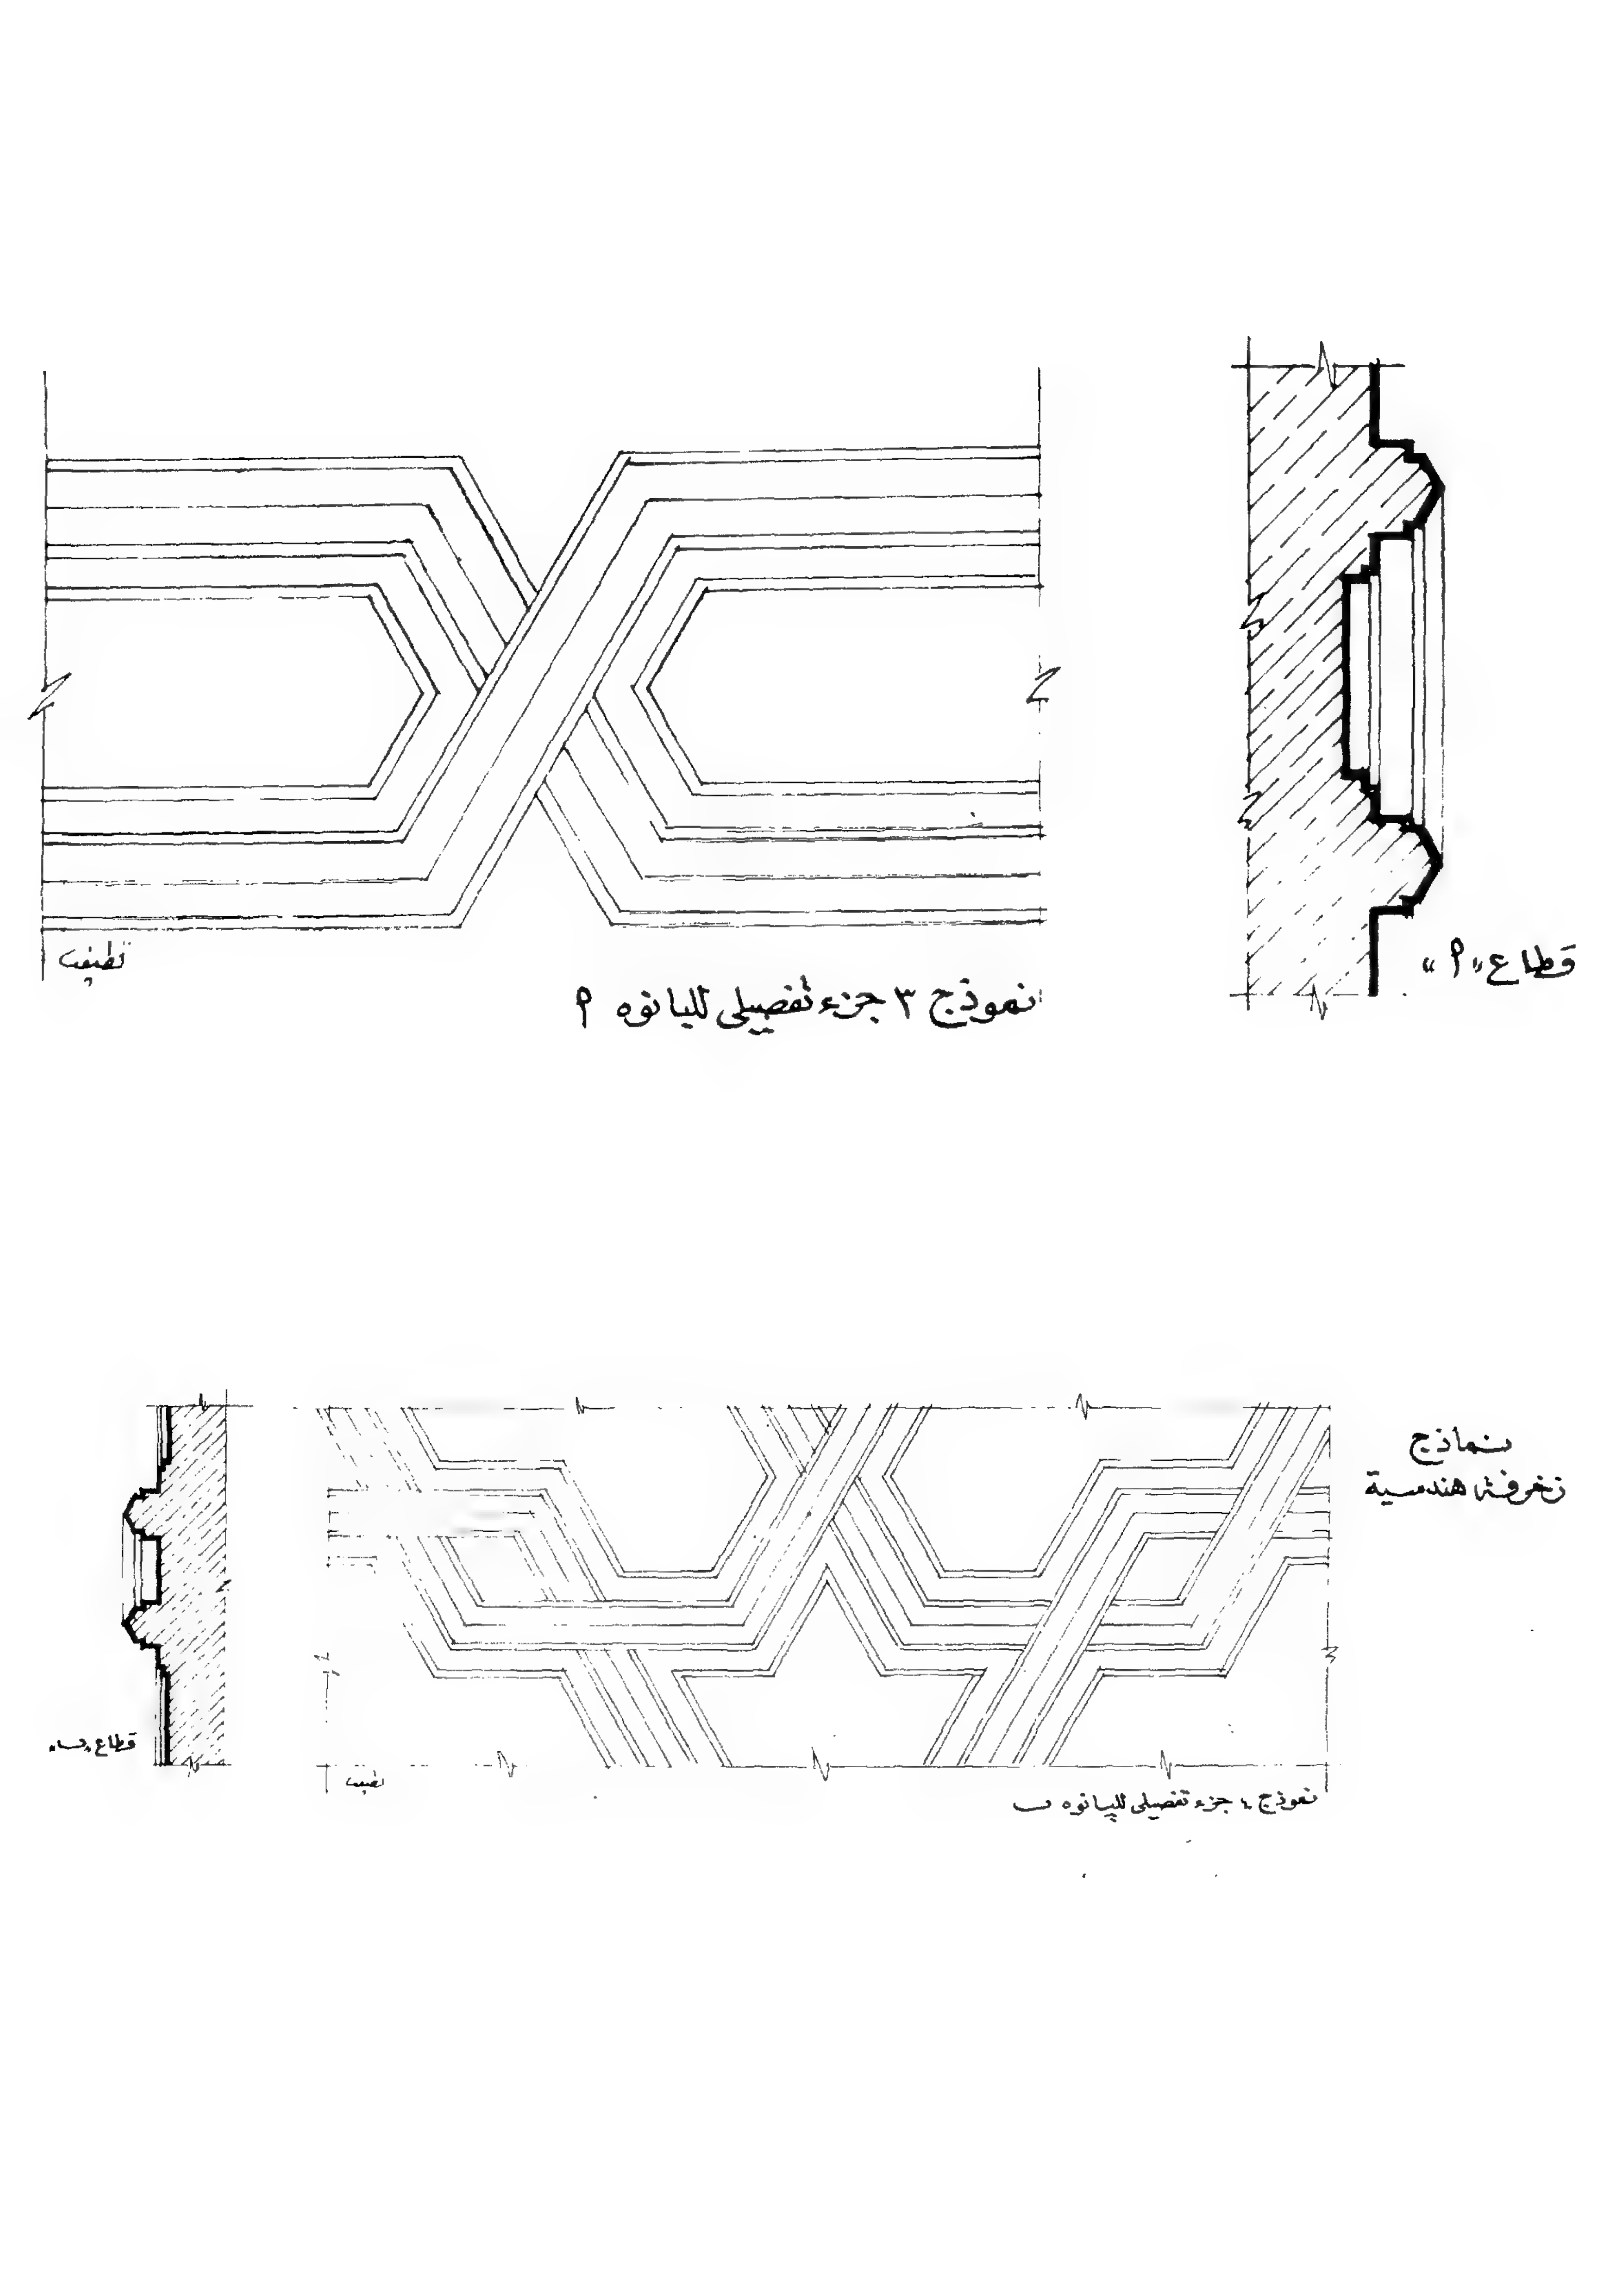 قطاع "أ"
نموذج ٣ جزء تفصيلى للبانوه أ
نماذج
زخرفة هندسية
قطاع "ب"
نموذج ٤ جزء تفصيلى للبانوه ب